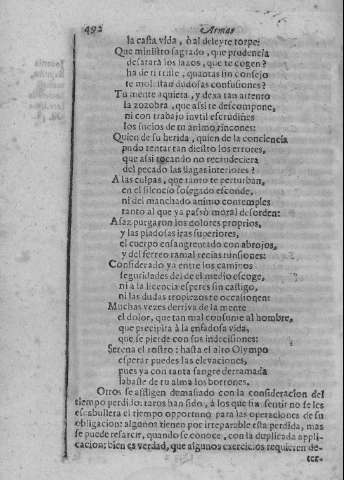 492 Armas
la casta vida, ò al deleyte torpe:
Que ministro sagrado, que prudencia
desatarà los lazos, que te cogen?
ha de ti triste, quantas sin consejo
te molestan dudosas confusiones?
Tu mente aquieta, y dexa tan atento
la zozobra, que assi te descompone,
ni con trabajo inutil escrudiñes
los sucios de tu animo rincones:
Quien de su herida, quien de la conciencia
pudo tentar tan diestro los errores,
que assi tocando no recaudeciera
del pecado las llagas interiores?
A las culpas, que tanto te perturban,
en el silencio sosegado esconde,
ni del manchado animo contemples
tanto al que ya passò moral desorden:
Asaz purgaron los dolores proprios,
y las piadosas iras superiores,
el cuerpo ensangrentado con abrojos,
y del ferreo ramal recias tunsiones:
Considerado ya entre los caminos
seguridades del de el medio escoge,
ni a la licencia esperes sin castigo,
ni las dudas tropiezos te occasionen:
Muchas vezes derriva de la mente
el dolor, que tan mal consume al hombre,
que precipita à la enfadosa vida,
que se pierde con sus indecisiones:
Serena el rostro: hasta el alto Olympo
esperar puedes las elevaciones,
pues ya con tanta sangre derramada
labaste de tu alma los borrones.
Otros se afligen demasiado con la consideracion del
tiempo perdido: raros han sido, à los que sin sentir no se les
escabullera el tiempo opportuno para las operaciones de su
obligacion: algunos tienen por irreparable esta perdida, mas
se puede resarcir, quando se conoce, con la duplicada appli-
cacion: bien es verdad, que algunos exercicios requieren de-
ter-